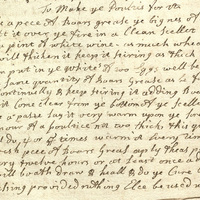 To Make ye Poultis for ye
a pece of hoars grease ye bignes of
it over ye fire in a Clean scellet
a pint of white wine - as much whea
will thicken it keep it stiring as thick
n put in ye yolks of two Eggs well be
fore quantity of hoars Grease as is f
Continually & keep stiring it adding hoars
it Come clean from ye bottom of ye Scellet
a paste lay it very warm upon ye
mor A poultice not two thick, this
dy, 3 or 4 times warmed Every tim
esh peece of hoars Greas apply these p
ery twelve hours, or at least once a
will both draw & heal & do ye Cure
thing provided nothing Else be used